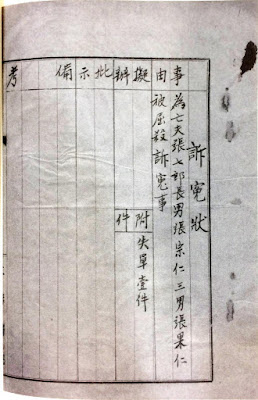 訴冤狀
事由
為亡夫張七郎長男張宗仁三男張果仁
被屈殺訴冤事
擬辦
附件
失單壹件
批示
備考